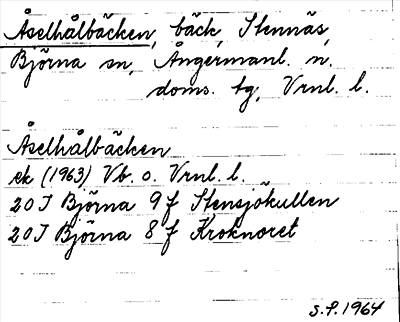 Åselhålbäcken, bäck, Stennäs,
Björna sn, Ångermanl. n.
doms. tg, Vrnl. l.
Åselhålbäcken
ek (1963) Vb. o. Vrnl. l.
20 J Björna 9 f Stensjökullen
20 J Björna 8 f Kroknoret
S.P. 1964